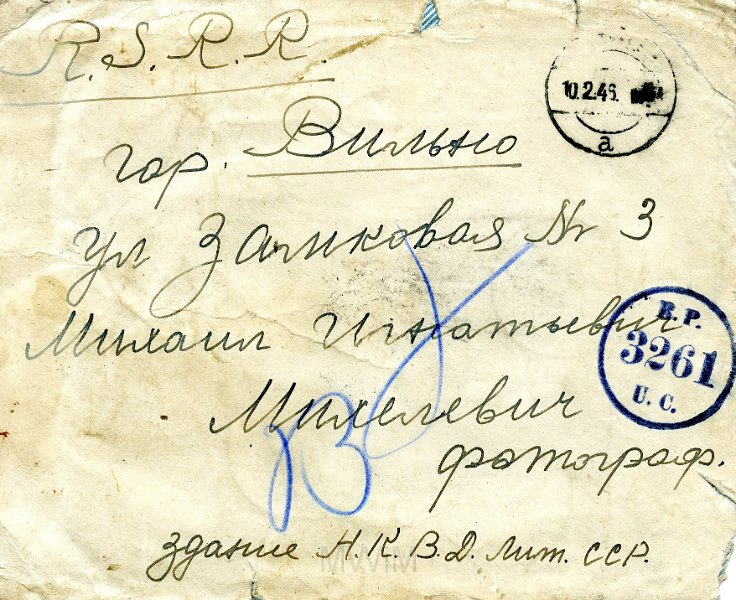 R.S.R.R.
10.2.46.
a
гор. Вильно
ул Замковая Nr 3
Михаил Игнатьевич
R.P.
3261
U.C.
Михелевич
фотограф.
здание Н.К.В.Д. Лит. ССР.